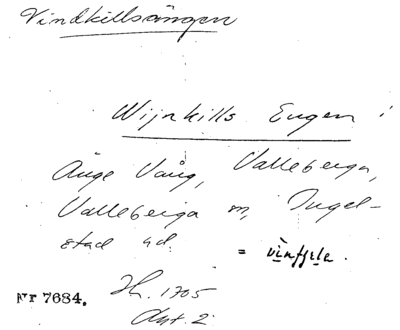 Vindkillsängen
Wijnkills Engen i
Änge Vång, Valleberga,
Valleberga sn, Ingel-
stad hd.
=
Nr 7684. Jh. 1705
Akt 2